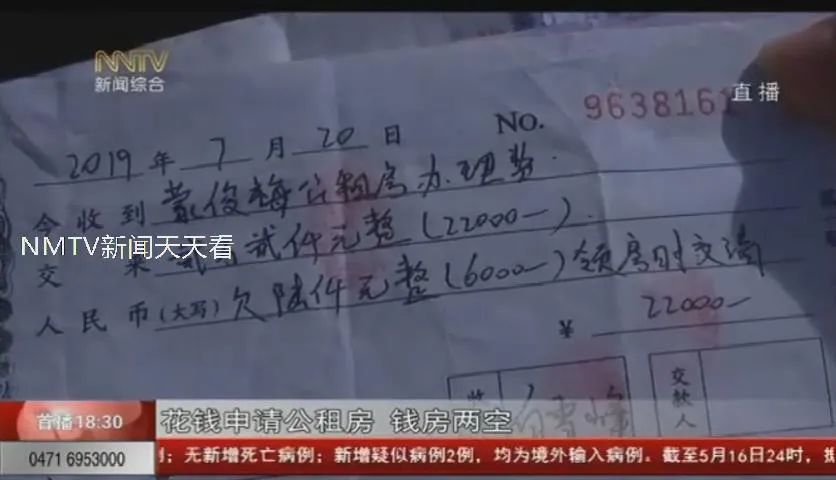 NMTV
新闻综合
直播
2019 年 7 月 20 日 No. 9638161
今收到 俊梅公租房办理费.
NMTV新闻天天看
交 来 贰仟元整(22000—).
人民币(大写) 欠陆仟元整(6000—)领房时交清
¥ 22000—
收
交款人
首播18:30 花钱申请公租房 钱房两空
0471 6953000 ；无新增死亡病例；新增疑似病例2例，均为境外输入病例。截至5月16日24时，据